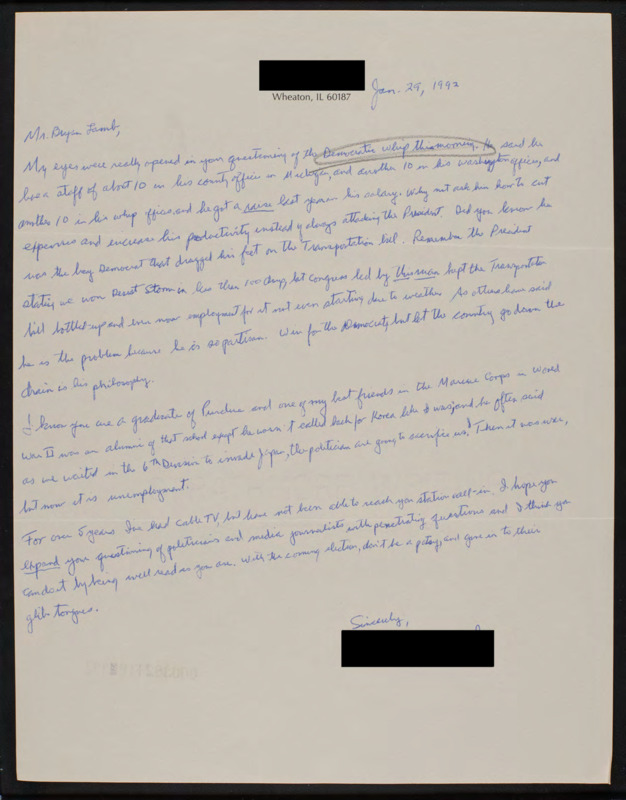 Wheaton, IL 60187
Jan. 29, 1992
Mr. Bryan Lamb,
My eyes were really opened in your questioning of the Democratic whip this morning. He said he
has a staff of about 10 in his county offices in Michigan, and another 10 in his Washington offices, and
another 10 in his whip offices and he got a raise last year in his salary. Why not ask him how to cut
expenses and increase his productivity instead of always attacking the President. Did you know he
was the key Democrat that dragged his feet on the Transportation bill. Remember the President
stating we won Desert Storm in less than 100 days, but Congress led by this man kept the Transportation
bill bottled-up and even now employment for it not even starting due to weather. As others have said
he is the problem because he is so partisan. Win for the Democrats, but let the country go down the
drain is his philosophy.
I know you are a graduate of Purdue and one of my best friends in the Marine Corps in World
War II was an alumni of that school except he wasn't called back for Korea like I was, and he often said
as we waited in the 6th Division to invade Japan, the politicians are going to sacrifice us. Then it was war,
but now it is unemployment.
For over 5 years I've had cable TV, but have not been able to reach you station call-in. I hope you
expand your questioning of politicians and media journalists with penetrating questions and I think you
can do it by being well read as you are. With the coming election, don't be a patsy, and give in to their
glib tongues.
Sincerely,